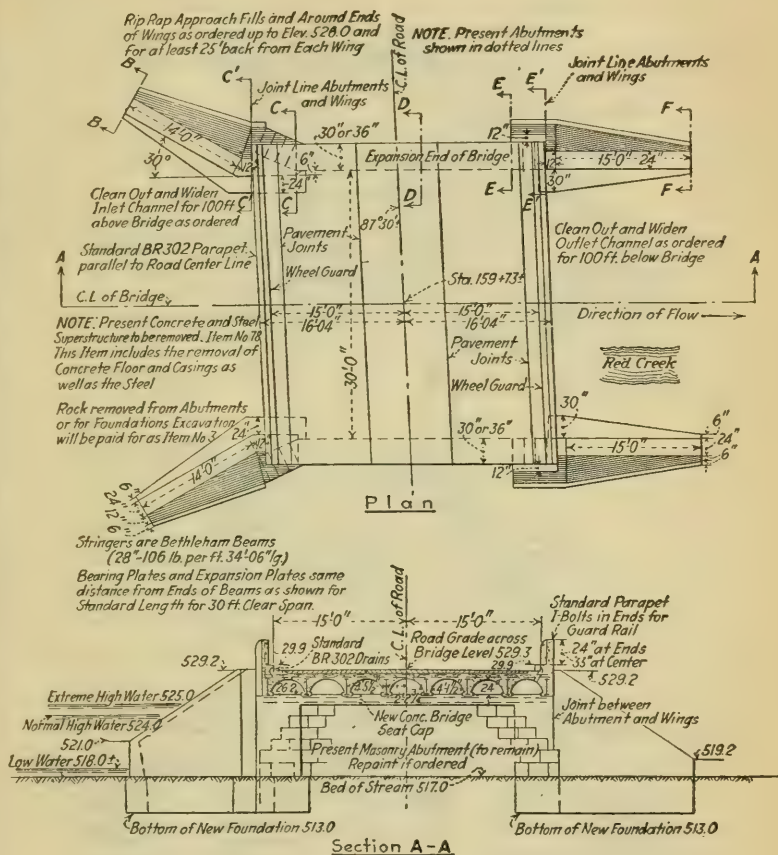 Rip Rap Approach Fills and Around Ends
of Wings as ordered up to Elev. 528.0 and
for at least 25' back from Each Wing
C.L. of Road
NOTE. Present Abutments
shown in dotted lines
B
B
C'
C
D
E
E'
F
Joint Line Abutments
and Wings
Joint Line Abutments
and Wings
14'-0"
30°
12"
30" or 36"
6"
24"
Expansion End of Bridge
12"
12"
15'-0"
24"
30"
C'
C
D
E
E'
F
Clean Out and Widen
Inlet Channel for 100ft
above Bridge as ordered
87°30'
Clean Out and Widen
Outlet Channel as ordered
for 100 ft. below Bridge
Standard BR302 Parapet
parallel to Road Center Line
Pavement
Joints
Wheel Guard
A
A
C.L. of Bridge
Sta. 159+73±
15'-0"
15'-0"
16'-04"
16'-04"
Direction of Flow
NOTE: Present Concrete and Steel
Superstructure to be removed. Item No 78
This Item includes the removal of
Concrete Floor and Casings as
well as the Steel
30'-0"
Pavement
Joints
Wheel Guard
Red Creek
Rock removed from Abutments
or for Foundations Excavation
will be paid for as Item No 3
24"
12"
14'-0"
6"
24"
12"
6"
30" or 36"
12"
30"
15'-0"
6"
24"
6"
Plan
Stringers are Bethleham Beams
(28"-106 lb. per ft. 34'-06" lg.)
Bearing Plates and Expansion Plates same
distance from Ends of Beams as shown for
Standard Length for 30 ft. Clear Span.
15'-0"
C.L. of Road
15'-0"
Standard Parapet
I-Bolts in Ends for
Guard Rail
24" at Ends
35" at Center
529.2
29.9
Standard
BR 302 Drains
Road Grade across
Bridge Level 529.3
29.9
529.2
Extreme High Water 525.0
Normal High Water 524.0
521.0
Low Water 518.0±
New Conc. Bridge
Seat Cap
Present Masonry Abutment (to remain)
Repaint if ordered
Bed of Stream 517.0
Joint between
Abutment and Wings
519.2
Bottom of New Foundation 513.0
Bottom of New Foundation 513.0
Section A-A